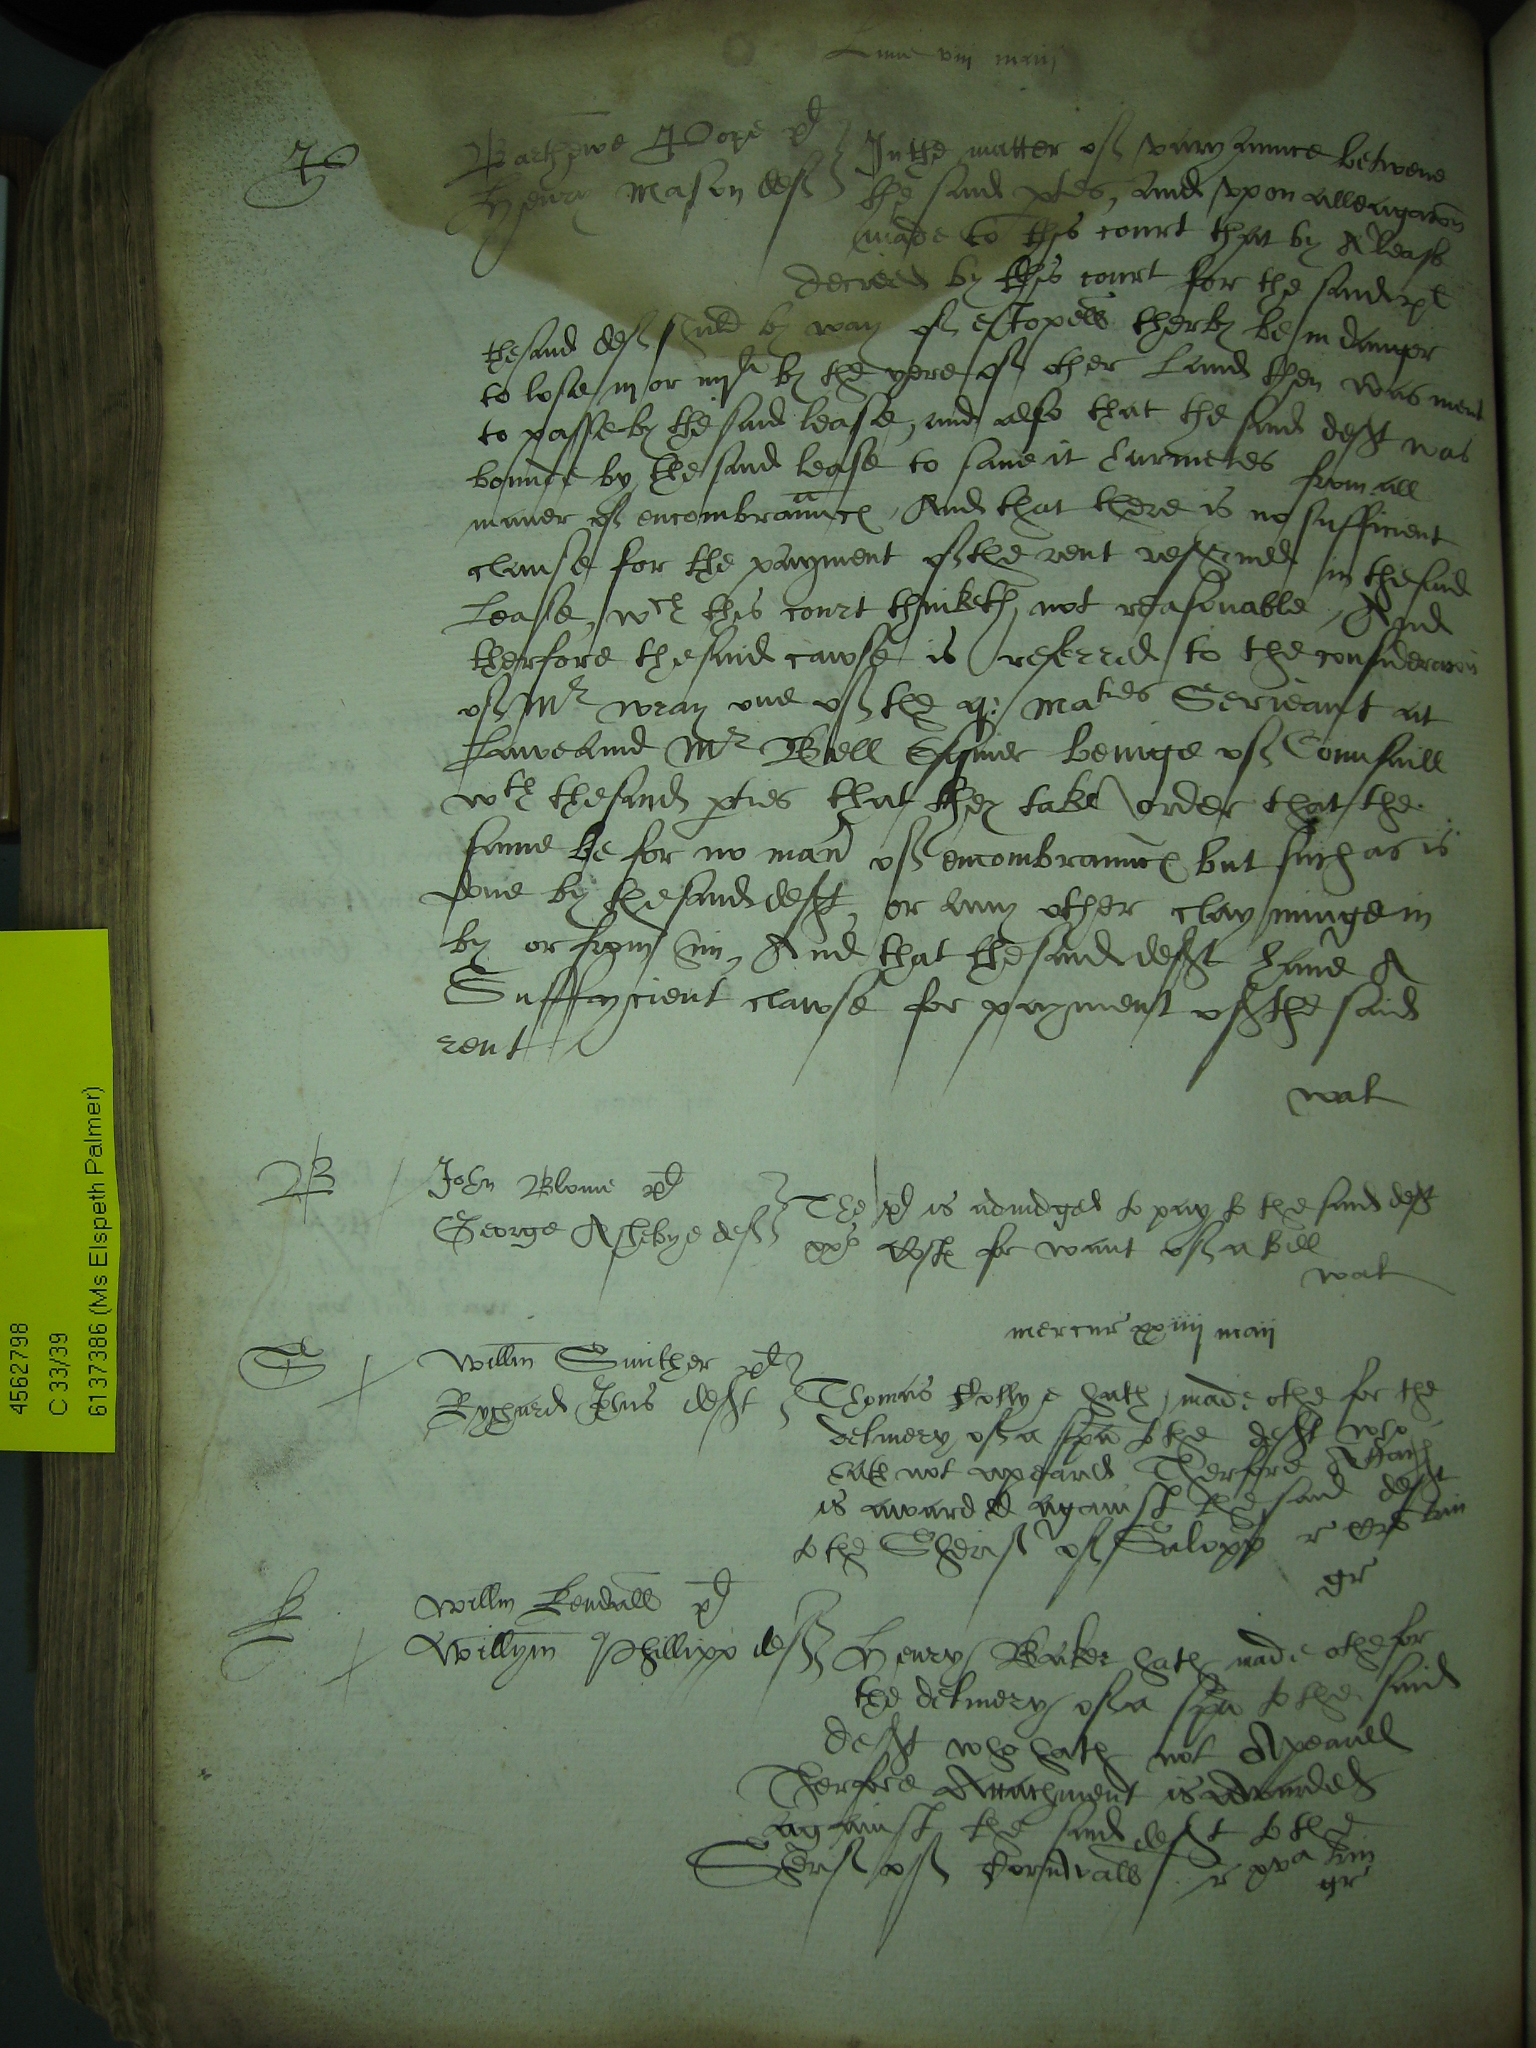 Lune viij maij
P
Barthewe Pope pl
Henry Mason deff
In the matter of varyaunce betwene
the said pties, and vpon alleagacon
made to this court that by A lease
decreed by this court for the said pl
the said deff shuld by way of estopell therby be in danger
to lose iij or iiijli by the yere of other Land then was ment
to passe by the said lease, and also that the said defft was
bounde by the said lease to save it harmeles from all
maner of encombraunc, And that there is no sufficient
clause for the payment of the rent reserved in the said
Lease, wch this court thinketh not reasonable, And
therfore the said cawse is referred to the consideracon
of Mr Wray one of the q: maties Serieant at
Lawe and Mr Bell Esquier beinge of Counsaill
wth the said pties that they take order that the
same be for no man of encombraunc but such as is
done by the said defft, or any other clayminge in
by or from him, And that the said defft have A
Suffycient clawse for payment of the said
rent
wal
B
John Blome pl
George Asshebye deff
The pl is adiudged to pay to the said deff
xxs Costs for want of a bill
wal
mercur xxiiij maij
S
Willm Smither pl
Rychard Ihns defft
Thomas Collye hath made othe for the
delivery of a spa to the defft who
hath not apeared Therfore Attach
is awarded against the said defft
to the Sherif of Salopp r crō trin
gr
K
Willm Kendall pl
Willym Phillipp deff
Henry Baker hath made othe for
the delivery of a spa to the said
defft who hath not Apeared
Therfore Attachment is awarded
against the said defft to the
Sherif of Cornwall r xva trin
gr
4562798
C 33/39
6137386 (Ms Elspeth Palmer)